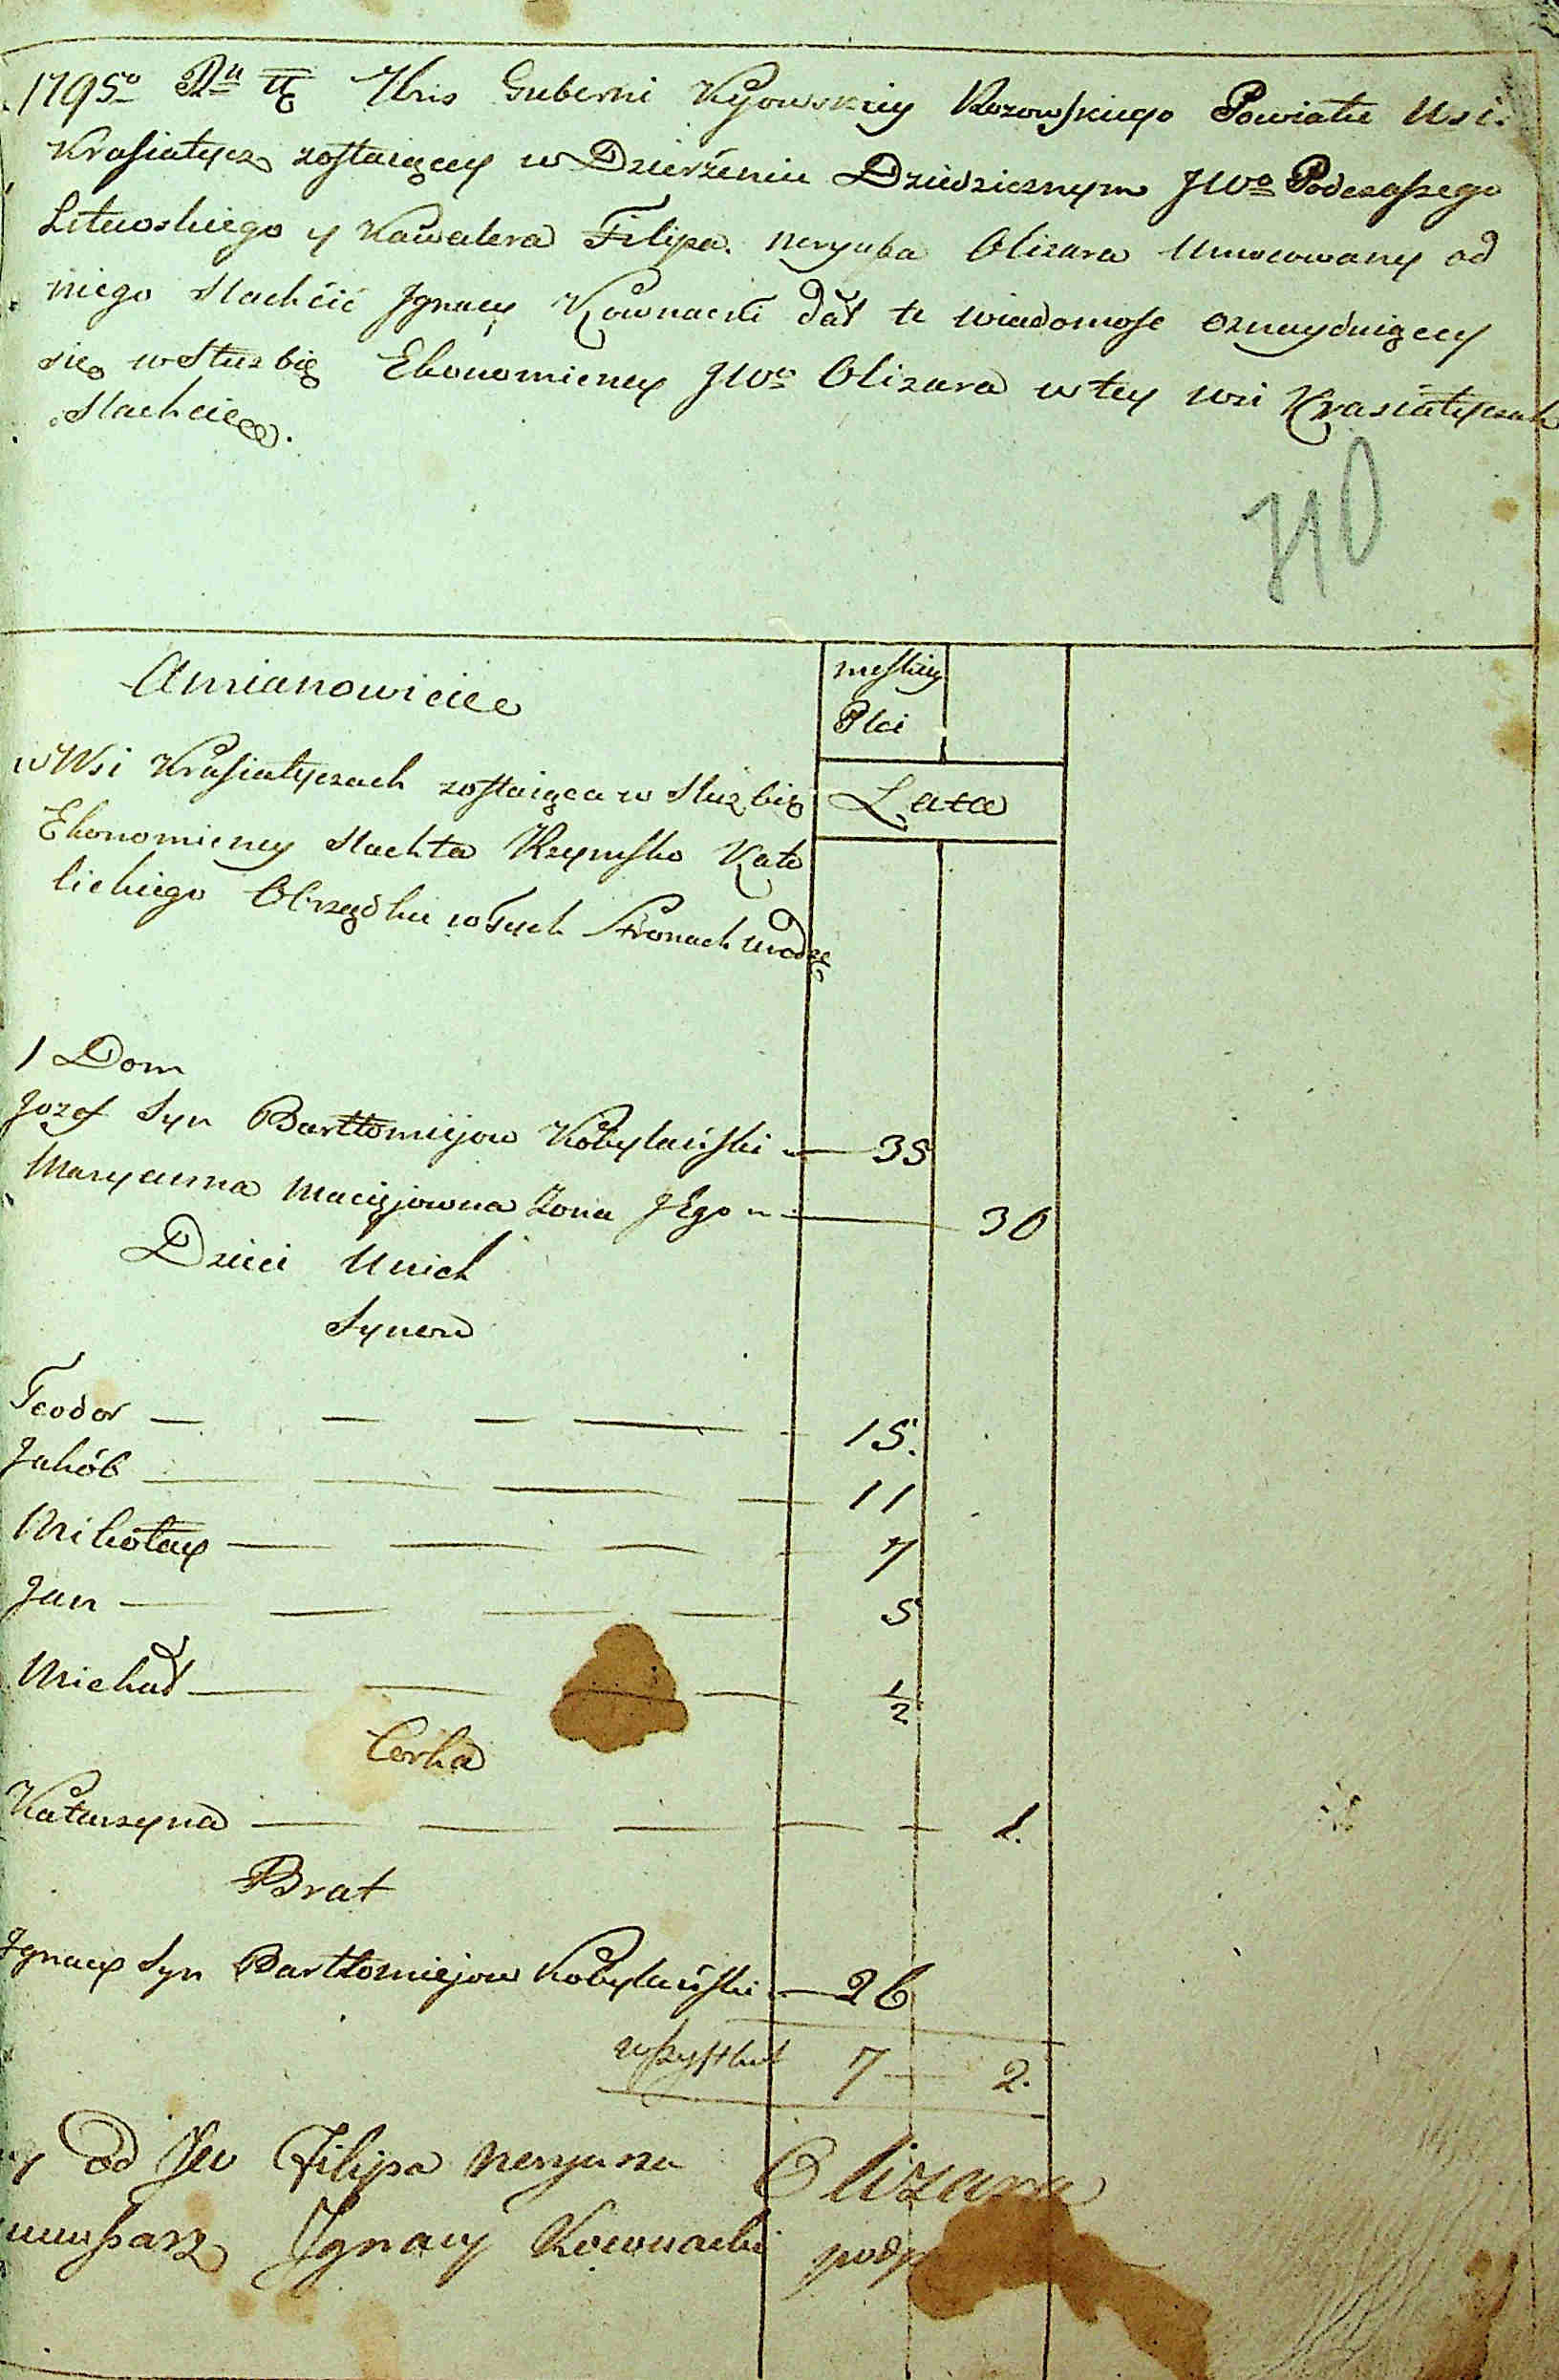 1795º Ru Xbris Guberni Kyowskiey Rozowskiego Powiatu Wsi
Krasiatycz zostaiącey w Dzierżeniu Dziedzicznym JWo Podczaszego
Litewskiego y Kawalera Filipa Neryusza Olizara Umocowany od
niego Slachcic Jgnacy Kownacki dał te wiadomosc o znayduiącey
się w Służbię Ekonomiczney JWo Olizara w tey wsi Krasiatyczach
Slachcie
710
A mianowicie
męskiey
Płci
w Wsi Krasiatyczach zostaiąca w Służbię
Lata
Ekonomiczney Slachta Rzymsko Kato
lickiego Obrządku w Tych Stronach urodzę
1 Dom
Jozef Syn Bartłomiejow Kobylański 35
Maryanna Maciejowna Zona JEgo 30
Dzieci U nich
Synow
Teodor 15.
Jakób 11
Mikołay 7
Jan 5
Michał ½
Corka
Katarzyna 1.
Brat
Jgnacy Syn Bartłomiejow Kobylański 26
wszystkich 7 2.
y od JW Filipa Neryusza Olizara
Jgnacy Kownacki podp